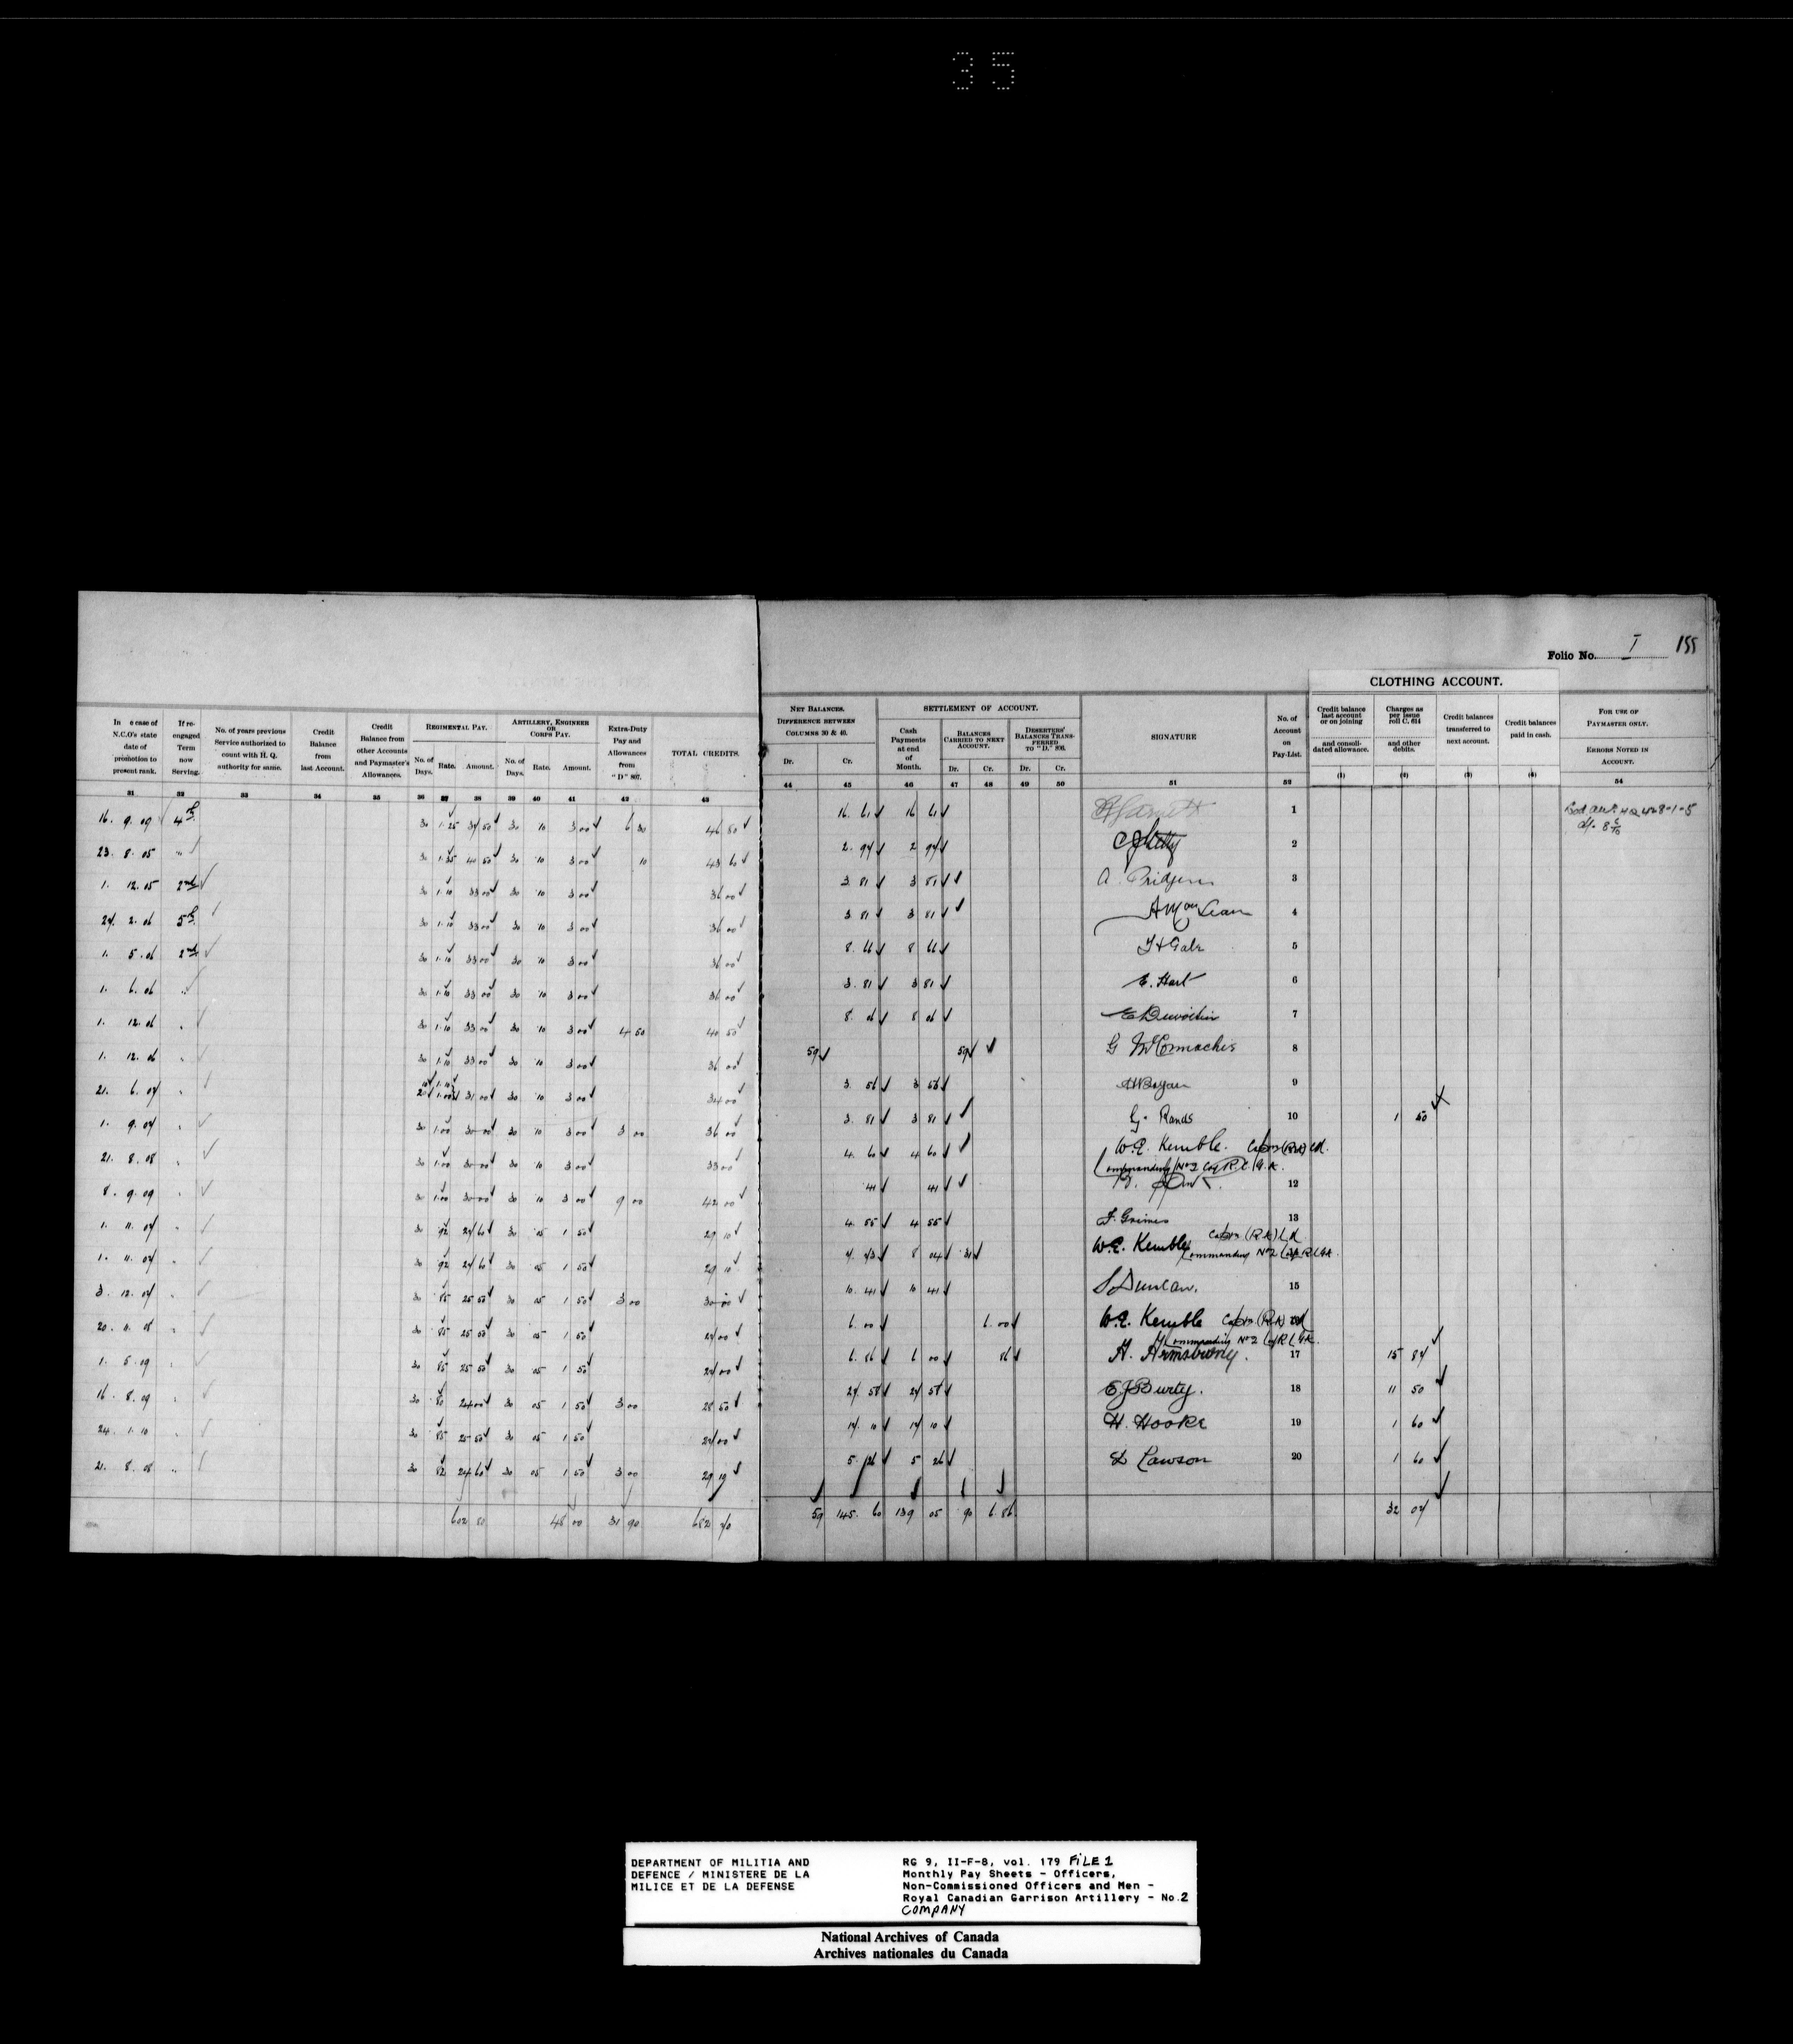 35
Folio No. I 155
CLOTHING ACCOUNT.
In e case of N.C.O's state date of promotion to present rank.
If re-engaged Term now Serving.
No. of years previous Service authorized to count with H. Q. authority for same.
Credit Balance from last Account.
Credit Balance from other Accounts and Paymaster's Allowances.
REGIMENTAL PAY.
No. of Days. Rate. Amount.
ARTILLERY, ENGINEER OR CORPS PAY.
No. of Days. Rate. Amount.
Extra-Duty Pay and Allowances from "D" 807.
TOTAL CREDITS.
NET BALANCES. DIFFERENCE BETWEEN COLUMNS 30 & 40.
Dr. Cr.
SETTLEMENT OF ACCOUNT.
Cash Payments at end of Month.
BALANCES CARRIED TO NEXT ACCOUNT.
Dr. Cr.
DESERTERS' BALANCES TRANSFERRED TO "D." 806.
Dr. Cr.
SIGNATURE
No. of Account on Pay-List.
Credit balance last account or on joining and consolidated allowance.
Charges as per issue roll C. 614 and other debits.
Credit balances transferred to next account.
Credit balances paid in cash.
FOR USE OF PAYMASTER ONLY.
ERRORS NOTED IN ACCOUNT.
31 32 33 34 35 36 37 38 39 40 41 42 43 44 45 46 47 48 49 50 51 52 (1) (2) (3) (4) 54
16. 9. 09 4th 30 1.25 37 50 30 10 3 00 6 30 46 80 16. 61 16 61 1
23. 8. 05 " 30 1.35 40 50 30 10 3 00 10 43 60 2. 94 2 94 2
1. 12. 05 2nd 30 1.10 33 00 30 10 3 00 36 00 3. 81 3 81 A. Pridgern 3
24. 2. 06 5th 30 1.10 33 00 30 10 3 00 36 00 3. 81 3 81 A MacLean 4
1. 5. 06 2nd 30 1.10 33 00 30 10 3 00 36 00 8. 66 8 66 5
1. 6. 06 " 30 1.10 33 00 30 10 3 00 36 00 3. 81 3 81 E. Hart 6
1. 12. 06 " 30 1.10 33 00 30 10 3 00 4 50 40 50 8. 06 8 06 7
1. 12. 06 " 30 1.10 33 00 30 10 3 00 36 00 59 59 8
21. 6. 07 " 31 00 30 10 3 00 34 00 3. 56 3 56 9
1. 9. 07 " 30 1.00 30 00 30 10 3 00 3 00 36 00 3. 81 3 81 G. Rands 10 1 50
21. 8. 08 " 30 1.00 30 00 30 10 3 00 33 00 4. 60 4 60 W.E. Kemble. Captn (R.A)
Commanding No 2 Coy R.C.G.A.
8. 9. 09 " 30 1.00 30 00 30 10 3 00 9 00 42 00 41 41 12
1. 11. 07 " 30 92 27 60 30 05 1 50 29 10 4. 55 4 55 F. Grimes 13
1. 11. 07 " 30 92 27 60 30 05 1 50 29 10 7. 73 8 04 31 W.E. Kemble Captn (R.A)
Commanding No 2 Coy R.C.G.A.
3. 12. 07 " 30 85 25 50 30 05 1 50 3 00 30 00 10. 41 10 41 S. Duncan. 15
20. 6. 08 " 30 85 25 50 30 05 1 50 27 00 6. 00 6. 00 W.E. Kemble Captn (R.A)
Commanding No 2 Coy R.C.G.A.
1. 5. 09 " 30 85 25 50 30 05 1 50 27 00 6. 86 6 00 86 H. Armstrong. 17 15 87
16. 8. 09 " 30 80 24 00 30 05 1 50 3 00 28 50 27. 58 27 58 18 11 50
24. 1. 10 " 30 85 25 50 30 05 1 50 27 00 17. 10 17 10 H. Hooke 19 1 60
21. 8. 08 " 30 82 24 60 30 05 1 50 3 00 29 10 5. 26 5 26 Lawson 20 1 60
602 80 48 00 31 90 682 70 59 145. 60 139 05 90 6. 86 32 07
DEPARTMENT OF MILITIA AND
DEFENCE / MINISTERE DE LA
MILICE ET DE LA DEFENSE
RG 9, II-F-8, vol. 179 FILE 1
Monthly Pay Sheets - Officers,
Non-Commissioned Officers and Men -
Royal Canadian Garrison Artillery - No. 2
COMPANY
National Archives of Canada
Archives nationales du Canada